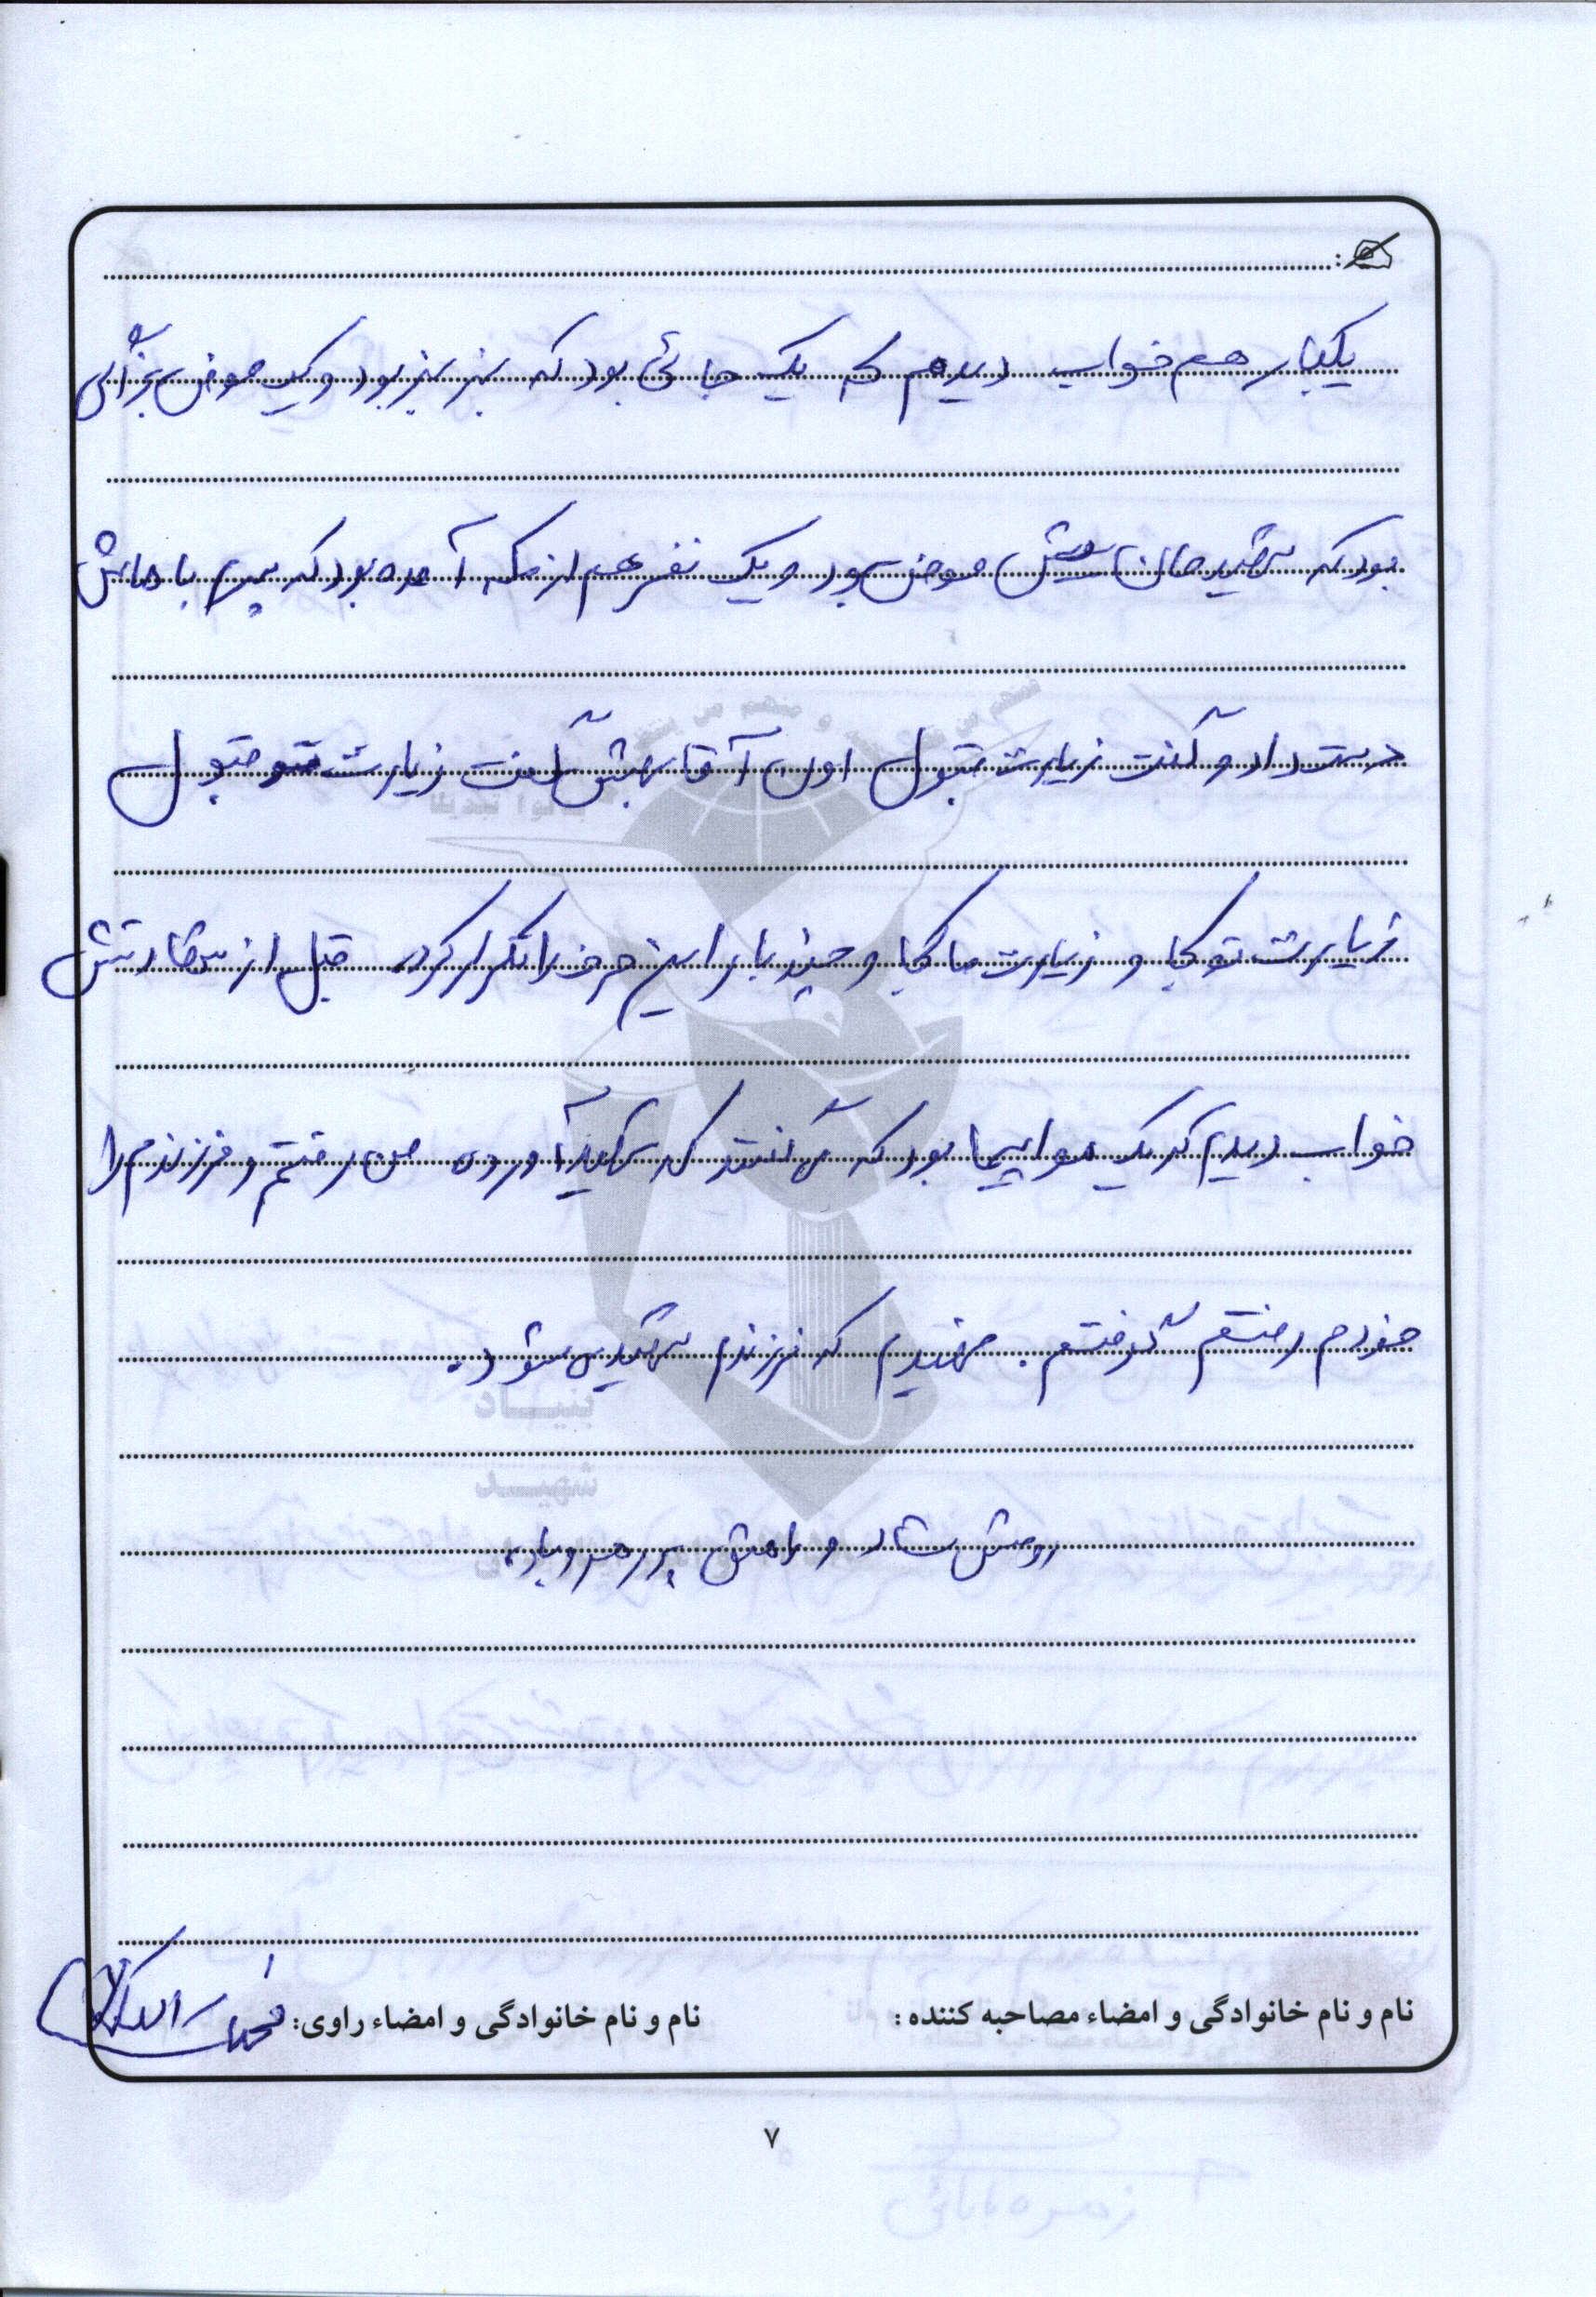 یکبار هم خواب دیدم که یک جائی بود که سبز سبز بود و یک حوض بزرگی
بود که شهیدمان پیش حوض بود و یک نفر هم از مکه آمده بود که پسرم باهاش
دست داد و گفت زیارت قبول اون آقا بهش گفت زیارت تو قبول
زیارت تو کجا و زیارت ما کجا و چند بار این حرف را تکرار کرد. قبل از شهادتش
خواب دیدم که یک هواپیما بود که می گفتند که شهید آورده من رفتم و فرزندم را
خودم رفتم گرفتم. فهمیدم که فرزندم شهید می شود.
روحش شاد و راهش پر رهرو باد.
نام و نام خانوادگی و امضاء مصاحبه کننده :
نام و نام خانوادگی و امضاء راوی:
۷